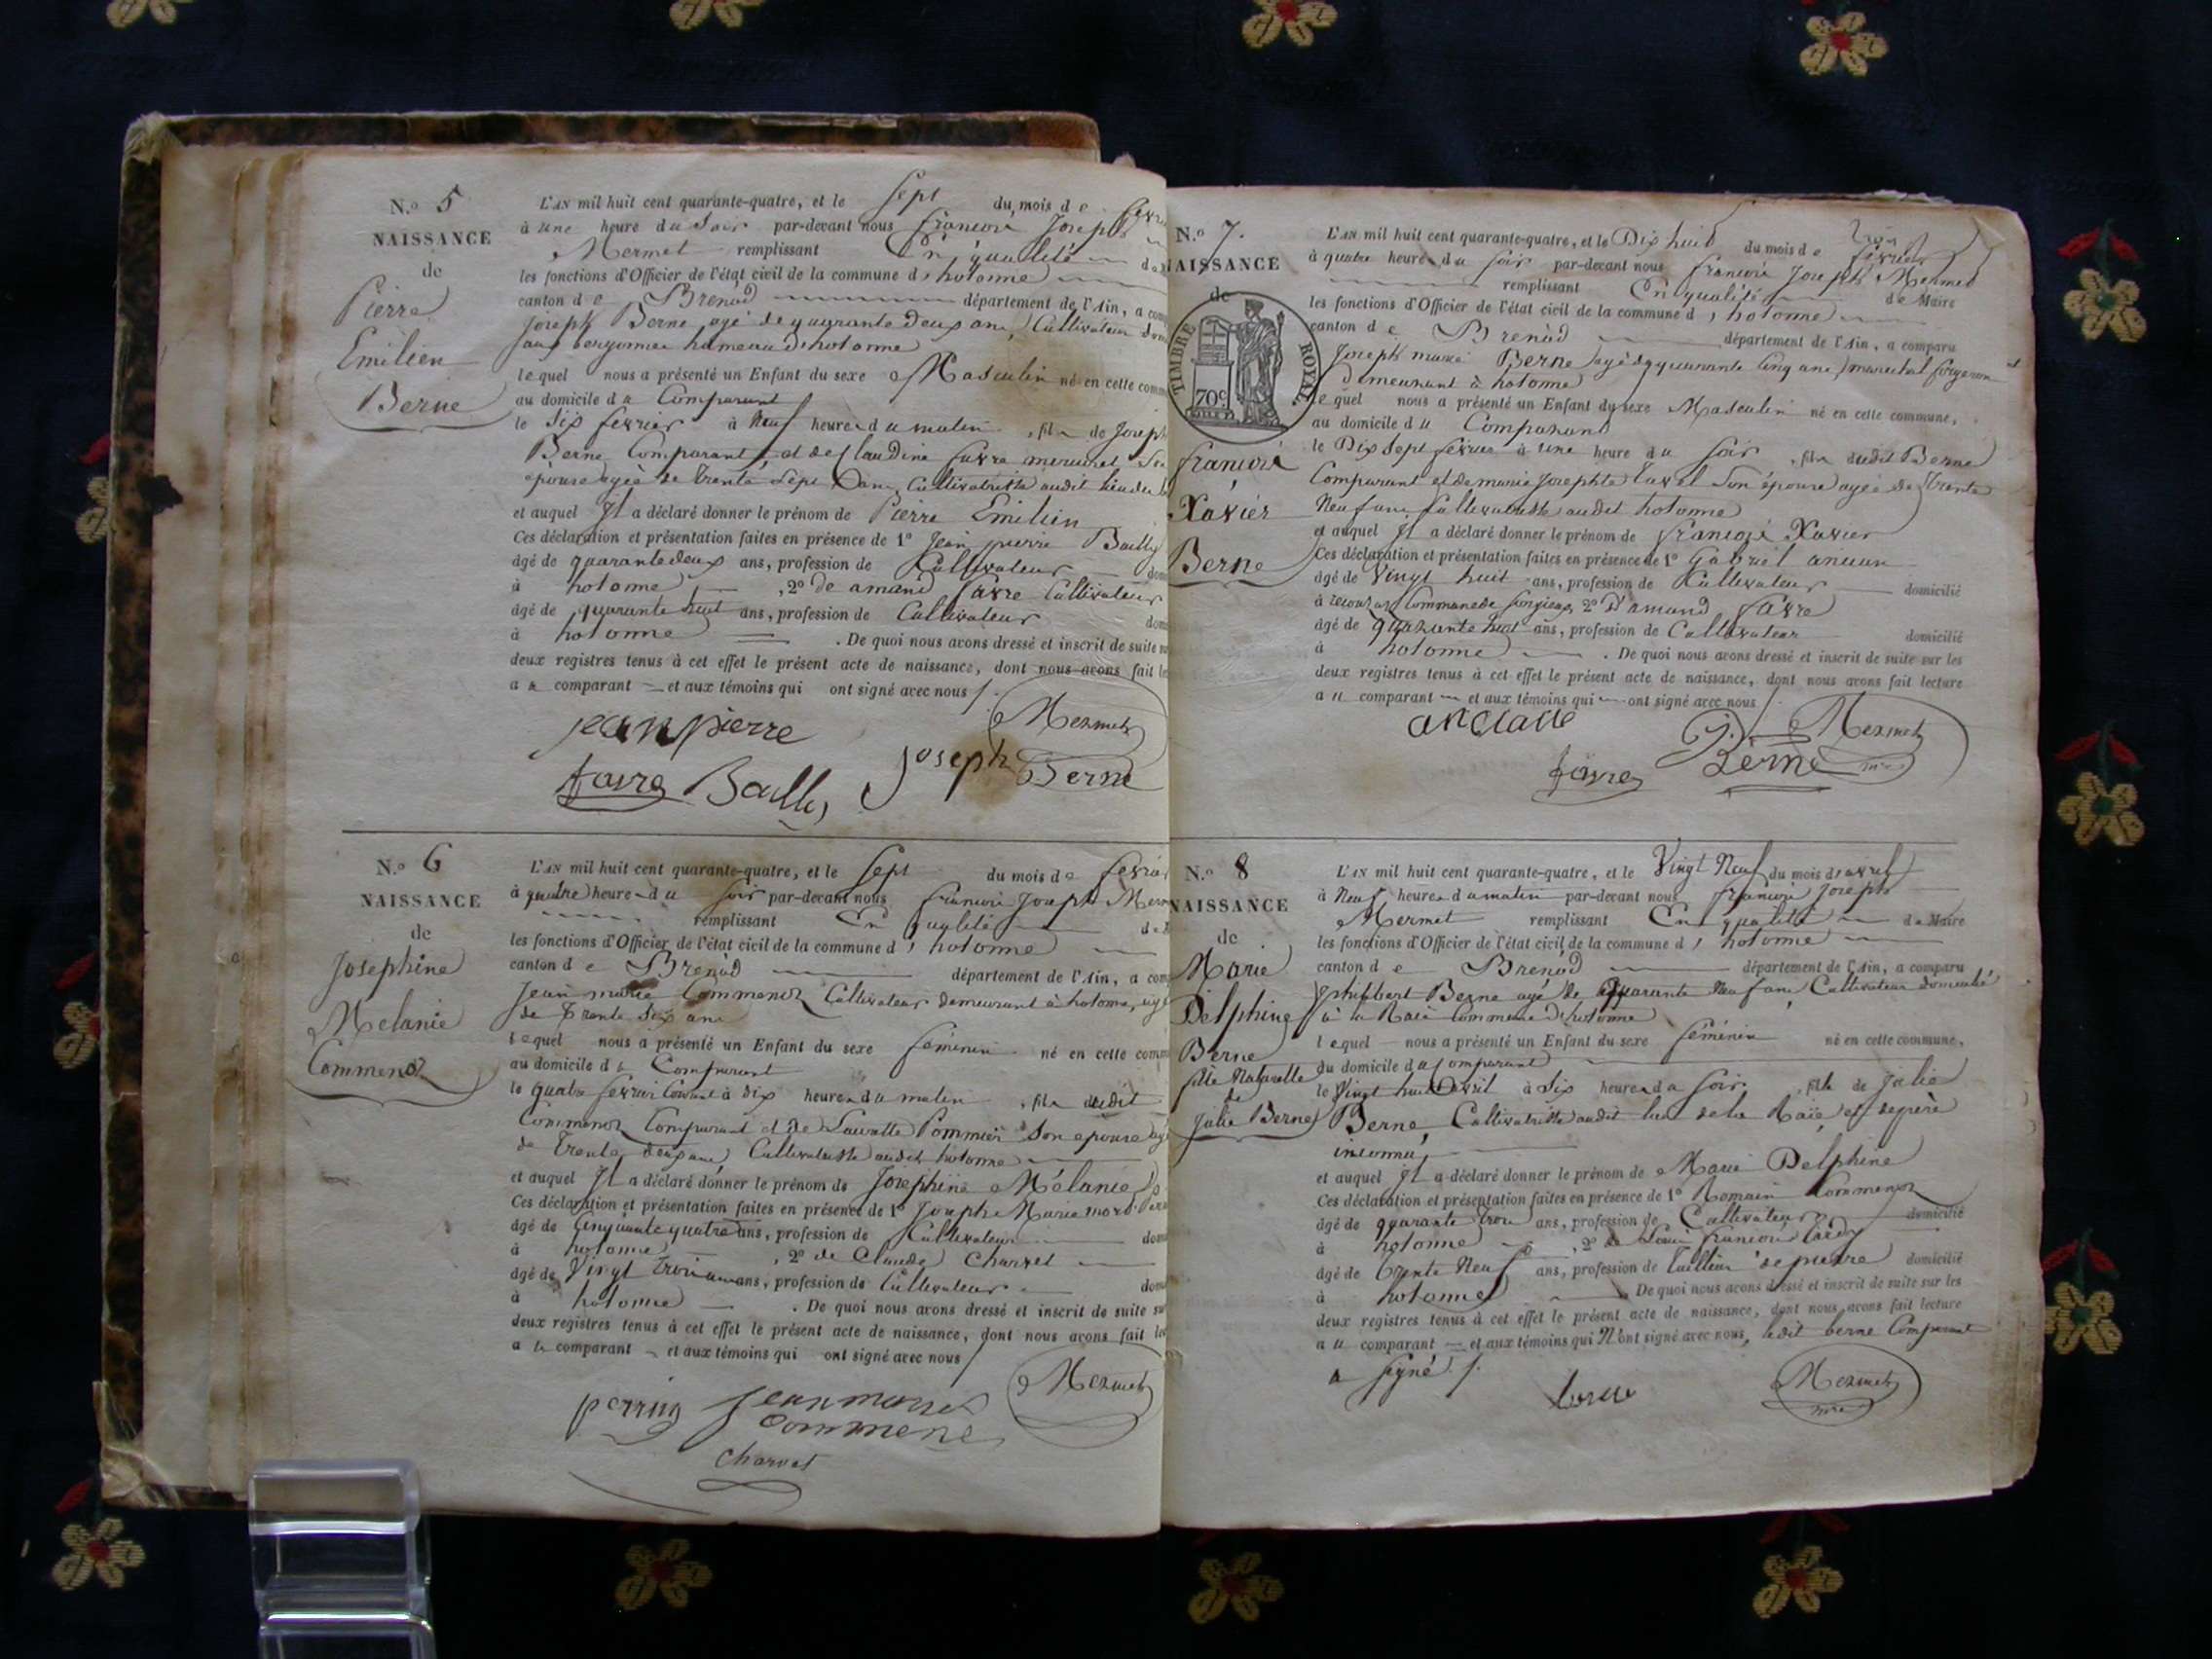 N.o 5
NAISSANCE
de
Pierre
Emilien
Berne
L'AN mil huit cent quarante-quatre, et le sept du mois de
à une heure du soir par-devant nous françois Joseph
Mermet remplissant En qualité
les fonctions d'Officier de l'état civil de la commune d'hotonne
canton de Brenod département de l'Ain, a
Joseph Berne agé de quarante deux ans Cultivateur
hameau d'hotonne
lequel nous a présenté un Enfant du sexe Masculin né en cette
au domicile du Comparant
le six fevrier à Neuf heure du matin, fils de Joseph
Berne Comparant et de Claudine favre
épouse agée de trente sept ans, Cultivatrice audit lieu
et auquel Il a déclaré donner le prénom de Pierre Emilien
Ces déclaration et présentation faites en présence de 1o Jean pierre Bailly
âgé de quarante deux ans, profession de Cultivateur
à hotonne, 2o de amand favre Cultivateur
âgé de quarante huit ans, profession de Cultivateur
à hotonne. De quoi nous avons dressé et inscrit de suite
deux registres tenus à cet effet le présent acte de naissance, dont nous avons fait
au comparant et aux témoins qui ont signé avec nous
jean pierre Mermet
favre Bailly Joseph Berne
N.o 6
NAISSANCE
de
Josephine
Melanie
Commenoz
L'AN mil huit cent quarante-quatre, et le sept du mois de
à quatre heure du soir par-devant nous francois Joseph
remplissant En qualité
les fonctions d'Officier de l'état civil de la commune d'hotonne
canton de Brenod département de l'Ain, a
Jean marie Commenoz Cultivateur demeurant à hotonne,
de trente six ans
lequel nous a présenté un Enfant du sexe feminin né en cette
au domicile du Comparant
le quatre fevrier Courant à dix heure du matin, fille dudit
Commenoz Comparant et de Pommier Son epouse
de trente deux ans Cultivatrice audit hotonne
et auquel Il a déclaré donner le prénom de Joséphine Mélanie
Ces déclaration et présentation faites en présence de 1o Joseph Marie
âgé de Cinquante quatre ans, profession de Cultivateur
à hotonne, 2o de Claude Charvet
âgé de Vingt trois ans, profession de Cultivateur
à hotonne. De quoi nous avons dressé et inscrit de suite
deux registres tenus à cet effet le présent acte de naissance, dont nous avons fait
au comparant et aux témoins qui ont signé avec nous
Mermet
perrin jean marie
commene
charvet
N.o 7.
NAISSANCE
de
TIMBRE ROYAL
70c
françois
Xavier
Berne
L'AN mil huit cent quarante-quatre, et le Dix huit du mois de fevrier
à quatre heure du soir par-devant nous francois Joseph Mermet
remplissant En qualité de Maire
les fonctions d'Officier de l'état civil de la commune d'hotonne
canton de Brenod département de l'Ain, a comparu
Joseph marie Berne agé de quarante Cinq ans marechal forgeron
demeurant à hotonne
lequel nous a présenté un Enfant du sexe Masculin né en cette commune,
au domicile du Comparant
le Dix Sept fevrier à une heure du soir, fils dudit Berne
Comparant et de marie Josephte Son épouse agée de trente
Neuf ans Cultivatrice audit hotonne
et auquel Il a déclaré donner le prénom de françois Xavier
Ces déclaration et présentation faites en présence de 1o Gabriel
âgé de Vingt huit ans, profession de Cultivateur domicilié
à Commune de Songieu, 2o D'amand favre
âgé de quarante huit ans, profession de Cultivateur domicilié
à hotonne. De quoi nous avons dressé et inscrit de suite sur les
deux registres tenus à cet effet le présent acte de naissance, dont nous avons fait lecture
au comparant et aux témoins qui ont signé avec nous
Mermet
favre Berne
N.o 8
NAISSANCE
de
Marie
Delphine
Berne
fille Naturelle
de
Julie Berne
L'AN mil huit cent quarante-quatre, et le Vingt Neuf du mois d'avril
à Neuf heure du matin par-devant nous francois Joseph
Mermet remplissant En qualité de Maire
les fonctions d'Officier de l'état civil de la commune d'hotonne
canton de Brenod département de l'Ain, a comparu
philibert Berne agé de quarante Neuf ans, Cultivateur domicilié
à la Commune d'hotonne
lequel nous a présenté un Enfant du sexe féminin né en cette commune,
au domicile du Comparant
le Vingt huit avril à Six heure du soir, fille de Julie
Berne, Cultivatrice audit lieu de la et de père
inconnu,
et auquel Il a déclaré donner le prénom de Marie Delphine
Ces déclaration et présentation faites en présence de 1o Romain Commenoz
âgé de quarante trois ans, profession de Cultivateur domicilié
à hotonne, 2o de Louis francois
âgé de trente Neuf ans, profession de tailleur de pierre domicilié
à hotonne. De quoi nous avons dressé et inscrit de suite sur les
deux registres tenus à cet effet le présent acte de naissance, dont nous avons fait lecture
au comparant et aux témoins qui N'ont signé avec nous, ledit berne Comparant
a signé
Mermet